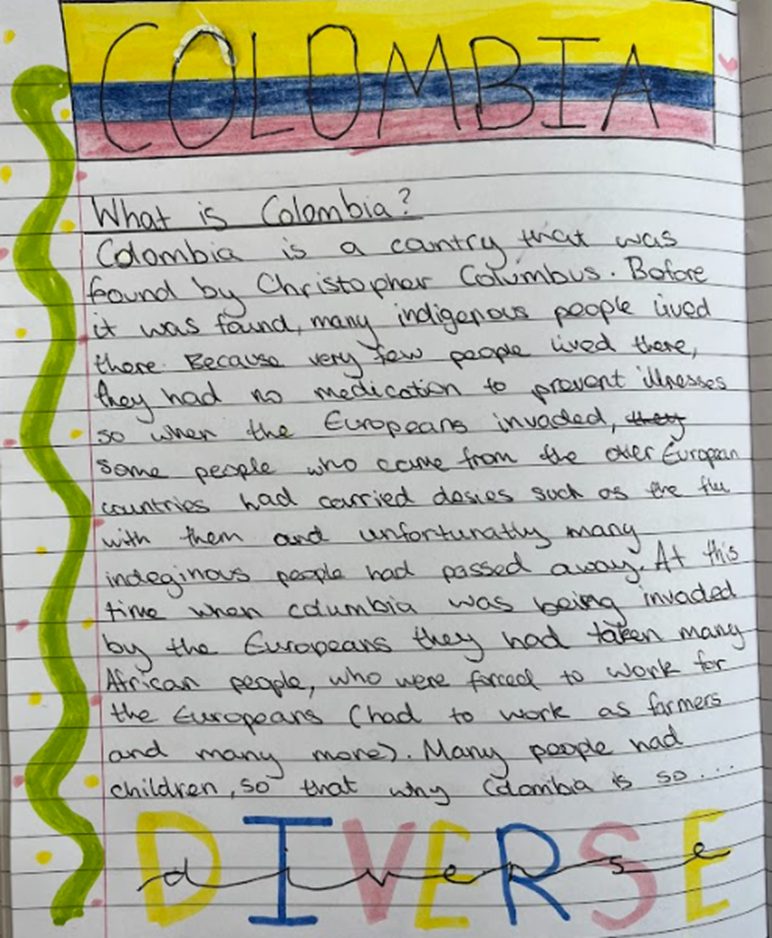 COLOMBIA
What is Colombia?
Colombia is a cantry that was
found by Christopher Columbus. Before
it was found, many indigenous people lived
there. Because very few people lived there,
they had no medication to prevent illnesses
so when the Europeans invaded, they
some people who came from the other European
countries had carried desies such as the flu
with them and unfortunatly many
indeginous people had passed away. At this
time when columbia was being invaded
by the Europeans they had taken many
African people, who were forced to work for
the Europeans (had to work as farmers
and many more). Many people had
children, so that why Colombia is so...
DIVERSE
diverse